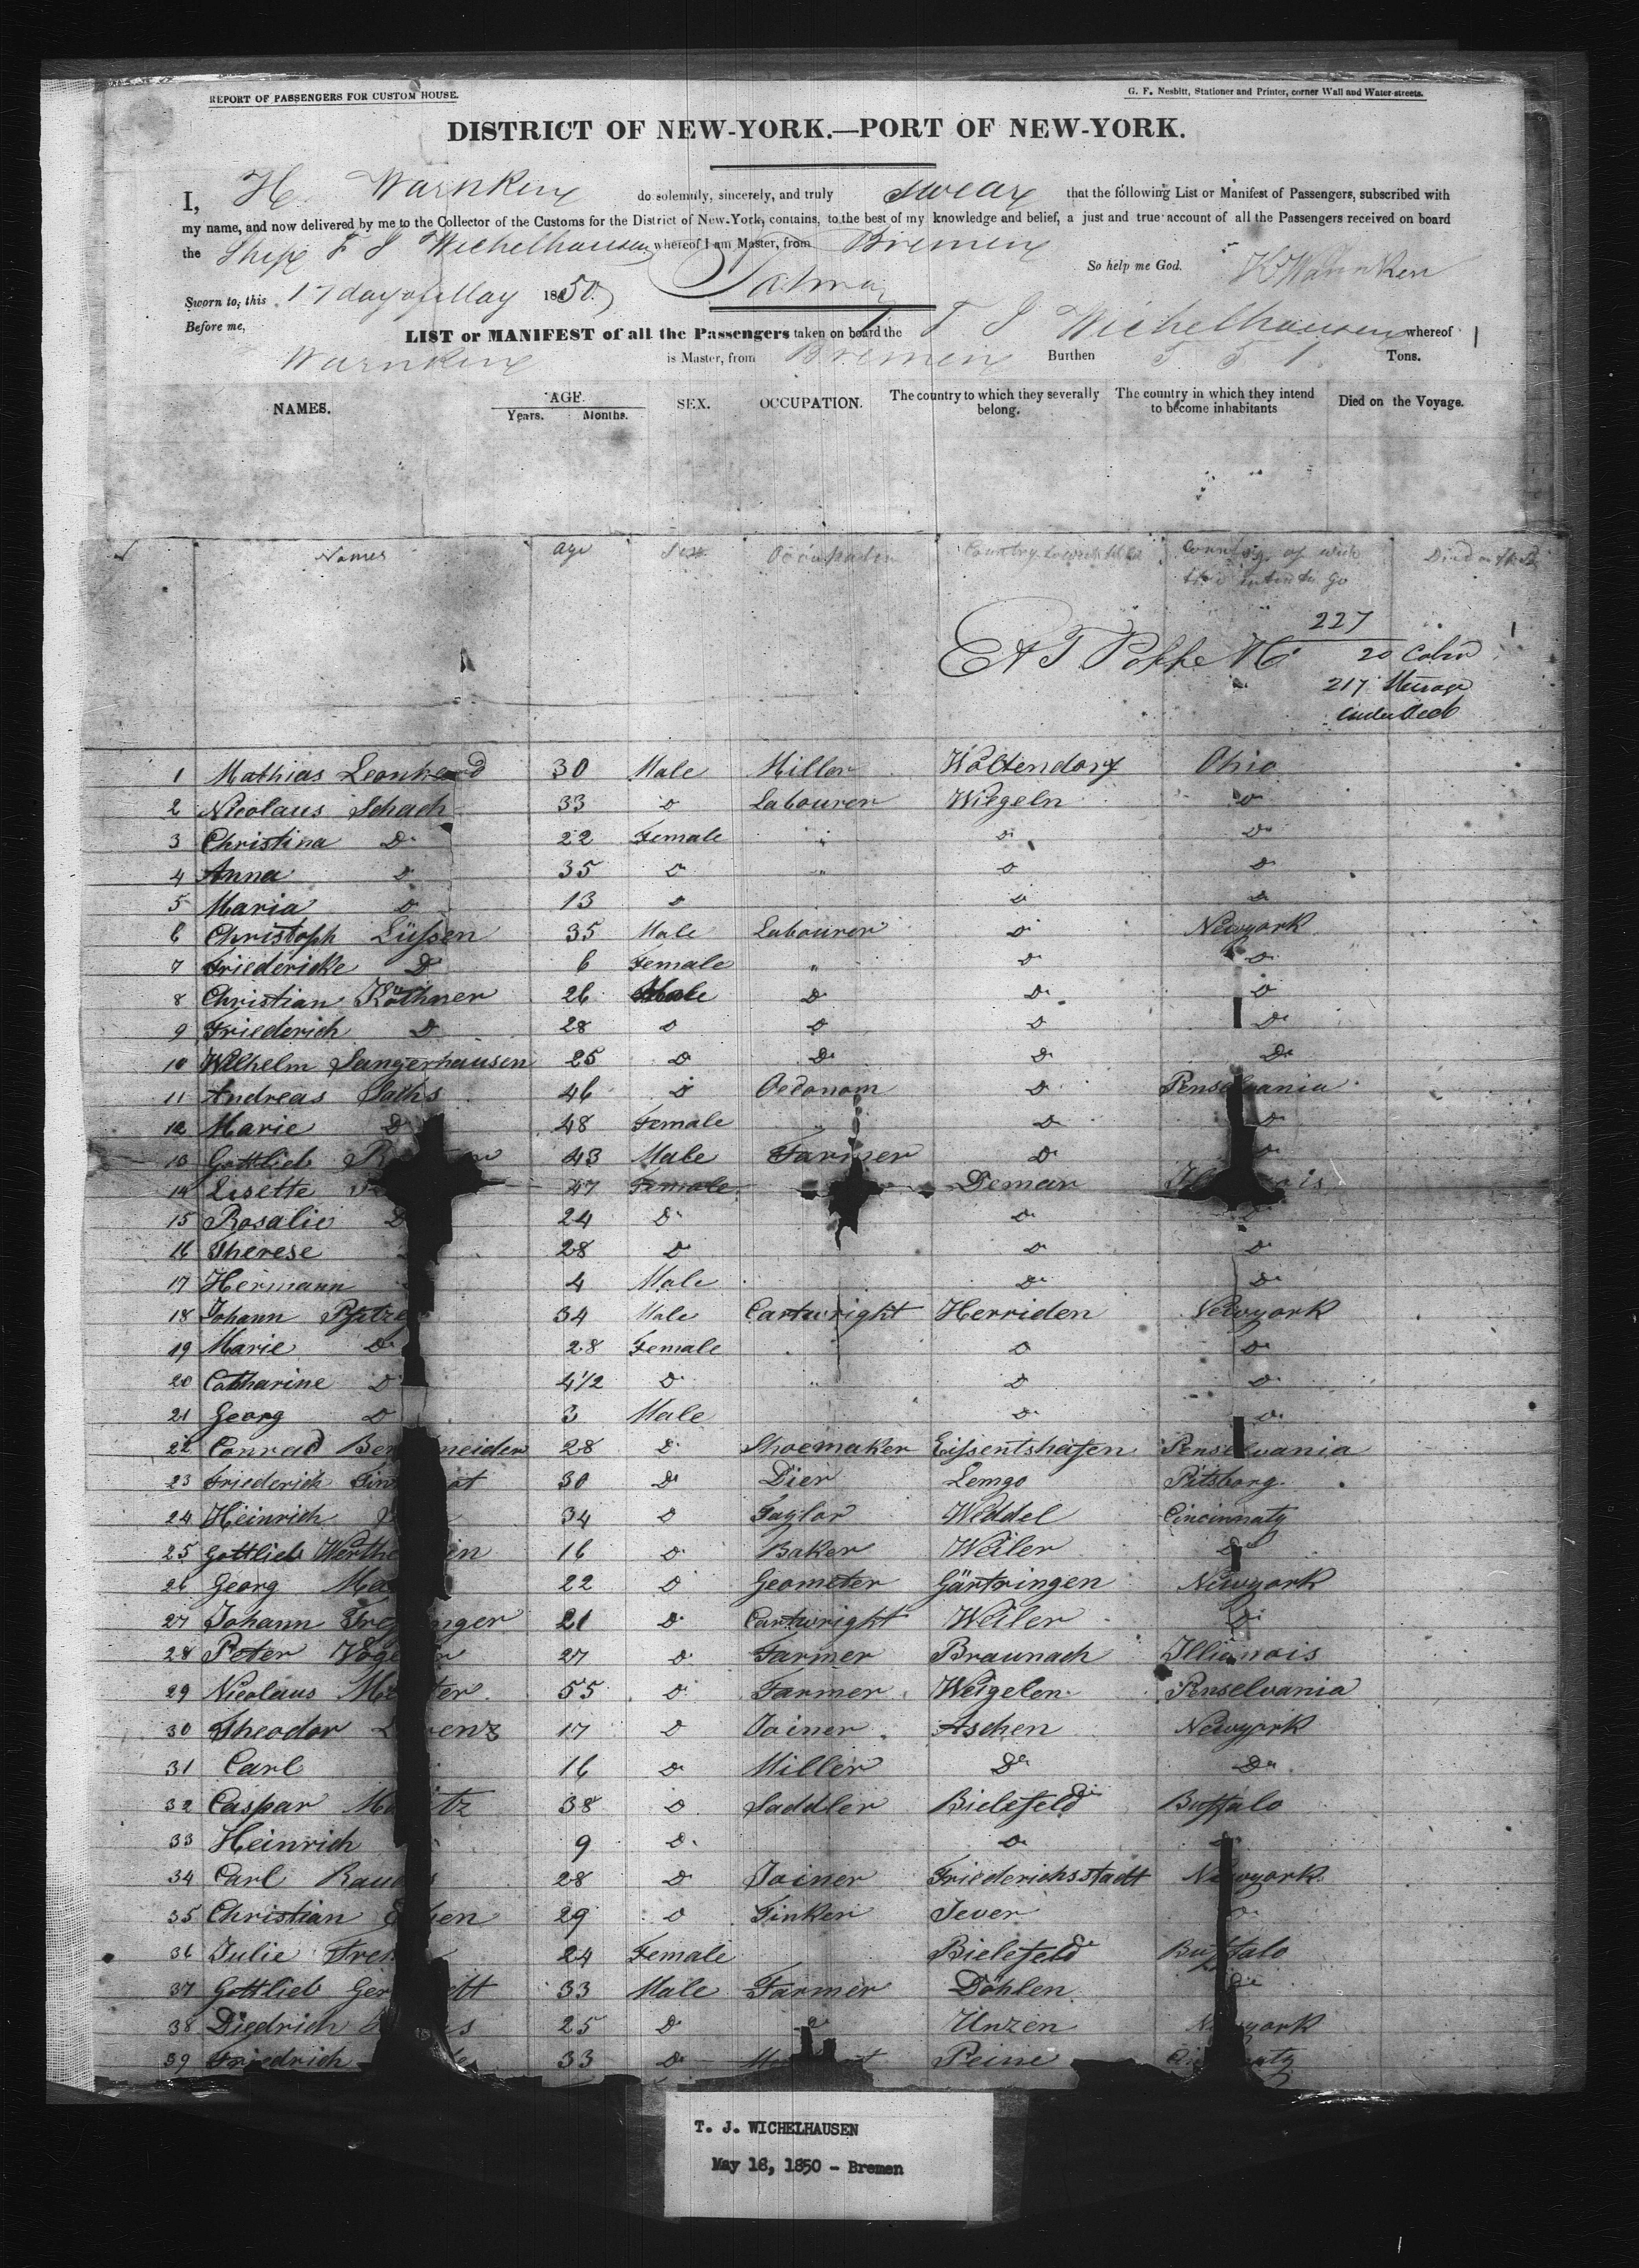 REPORT OF PASSENGERS FOR CUSTOM HOUSE.
G. F. Nesbitt, Stationer and Printer, corner Wall and Water-streets.
DISTRICT OF NEW-YORK.—PORT OF NEW-YORK.
I, H. Warnken do solemnly, sincerely, and truly swear that the following List or Manifest of Passengers, subscribed with
my name, and now delivered by me to the Collector of the Customs for the District of New-York, contains, to the best of my knowledge and belief, a just and true account of all the Passengers received on board
the Ship F J Wichelhausen whereof I am Master, from Bremen
So help me God. H Warnken
Sworn to, this 17 day of May 1850
Before me,
LIST or MANIFEST of all the Passengers taken on board the F J Wichelhausen whereof
Warnken is Master, from Bremen Burthen 551 Tons.
NAMES. AGE. Years. Months. SEX. OCCUPATION. The country to which they severally belong. The country in which they intend to become inhabitants Died on the Voyage.
Names Age Sex Occupation
227
20 Cabin
217 Steerage
1 Mathias Leonhard 30 Male Miller Woltendorf Ohio
2 Nicolaus Schach 33 Do Labourer Wiegeln Do
3 Christina Do 22 Female " Do Do
4 Anna Do 35 Do " Do Do
5 Maria Do 13 Do Do Do
6 Christoph Lüssen 35 Male Labourer Do Newyork
7 Friedericke Do 6 Female " Do Do
8 Christian Köthner 26 Male Do Do Do
9 Friederich Do 28 Do Do Do Do
10 Wilhelm Sangerhausen 25 Do Do Do Do
11 Andreas Saths 46 Do Oeconom Do Penselvania
12 Marie Do 48 Female " Do Do
13 Gottlieb 43 Male Farmer Do Do
14 Lisette 47 Female Demar
15 Rosalie Do 24 Do Do Do
16 Therese 28 Do Do Do
17 Hermann 4 Male Do Do
18 Johann 34 Male Cartwright Herriden Newyork
19 Marie Do 28 Female Do Do
20 Catharine Do 4 1/2 Do " Do Do
21 Georg Do 3 Male Do Do
22 Conrad 28 Do Shoemaker Eissentshafen Penselvania
23 Friederich 30 Do Dier Lemgo Pitsborg
24 Heinrich 34 Do Taylor Weddel Cincinnaty
25 Gottlieb 16 Do Baker Weiler Do
26 Georg 22 Do Geometer Gärtringen Newyork
27 Johann 21 Do Cartwright Weiler Do
28 Peter 27 Do Farmer Braunach Illienois
29 Nicolaus 55 Do Farmer Weigelen Penselvania
30 Theodor 17 Do Joiner Aschen Newyork
31 Carl 16 Do Miller Do Do
32 Caspar 38 Do Saddler Bielefeld Buffalo
33 Heinrich 9 Do Do Do
34 Carl 28 Do Joiner Friederichsstadt Newyork
35 Christian 29 Do Tinker Jever Do
36 Julie 24 Female Bielefeld Buffalo
37 Gottlieb 33 Male Farmer Döhlen Do
38 Diedrich 25 Do Do Unzen Newyork
39 Friedrich 33 Do Peine
T. J. WICHELHAUSEN
May 18, 1850 - Bremen